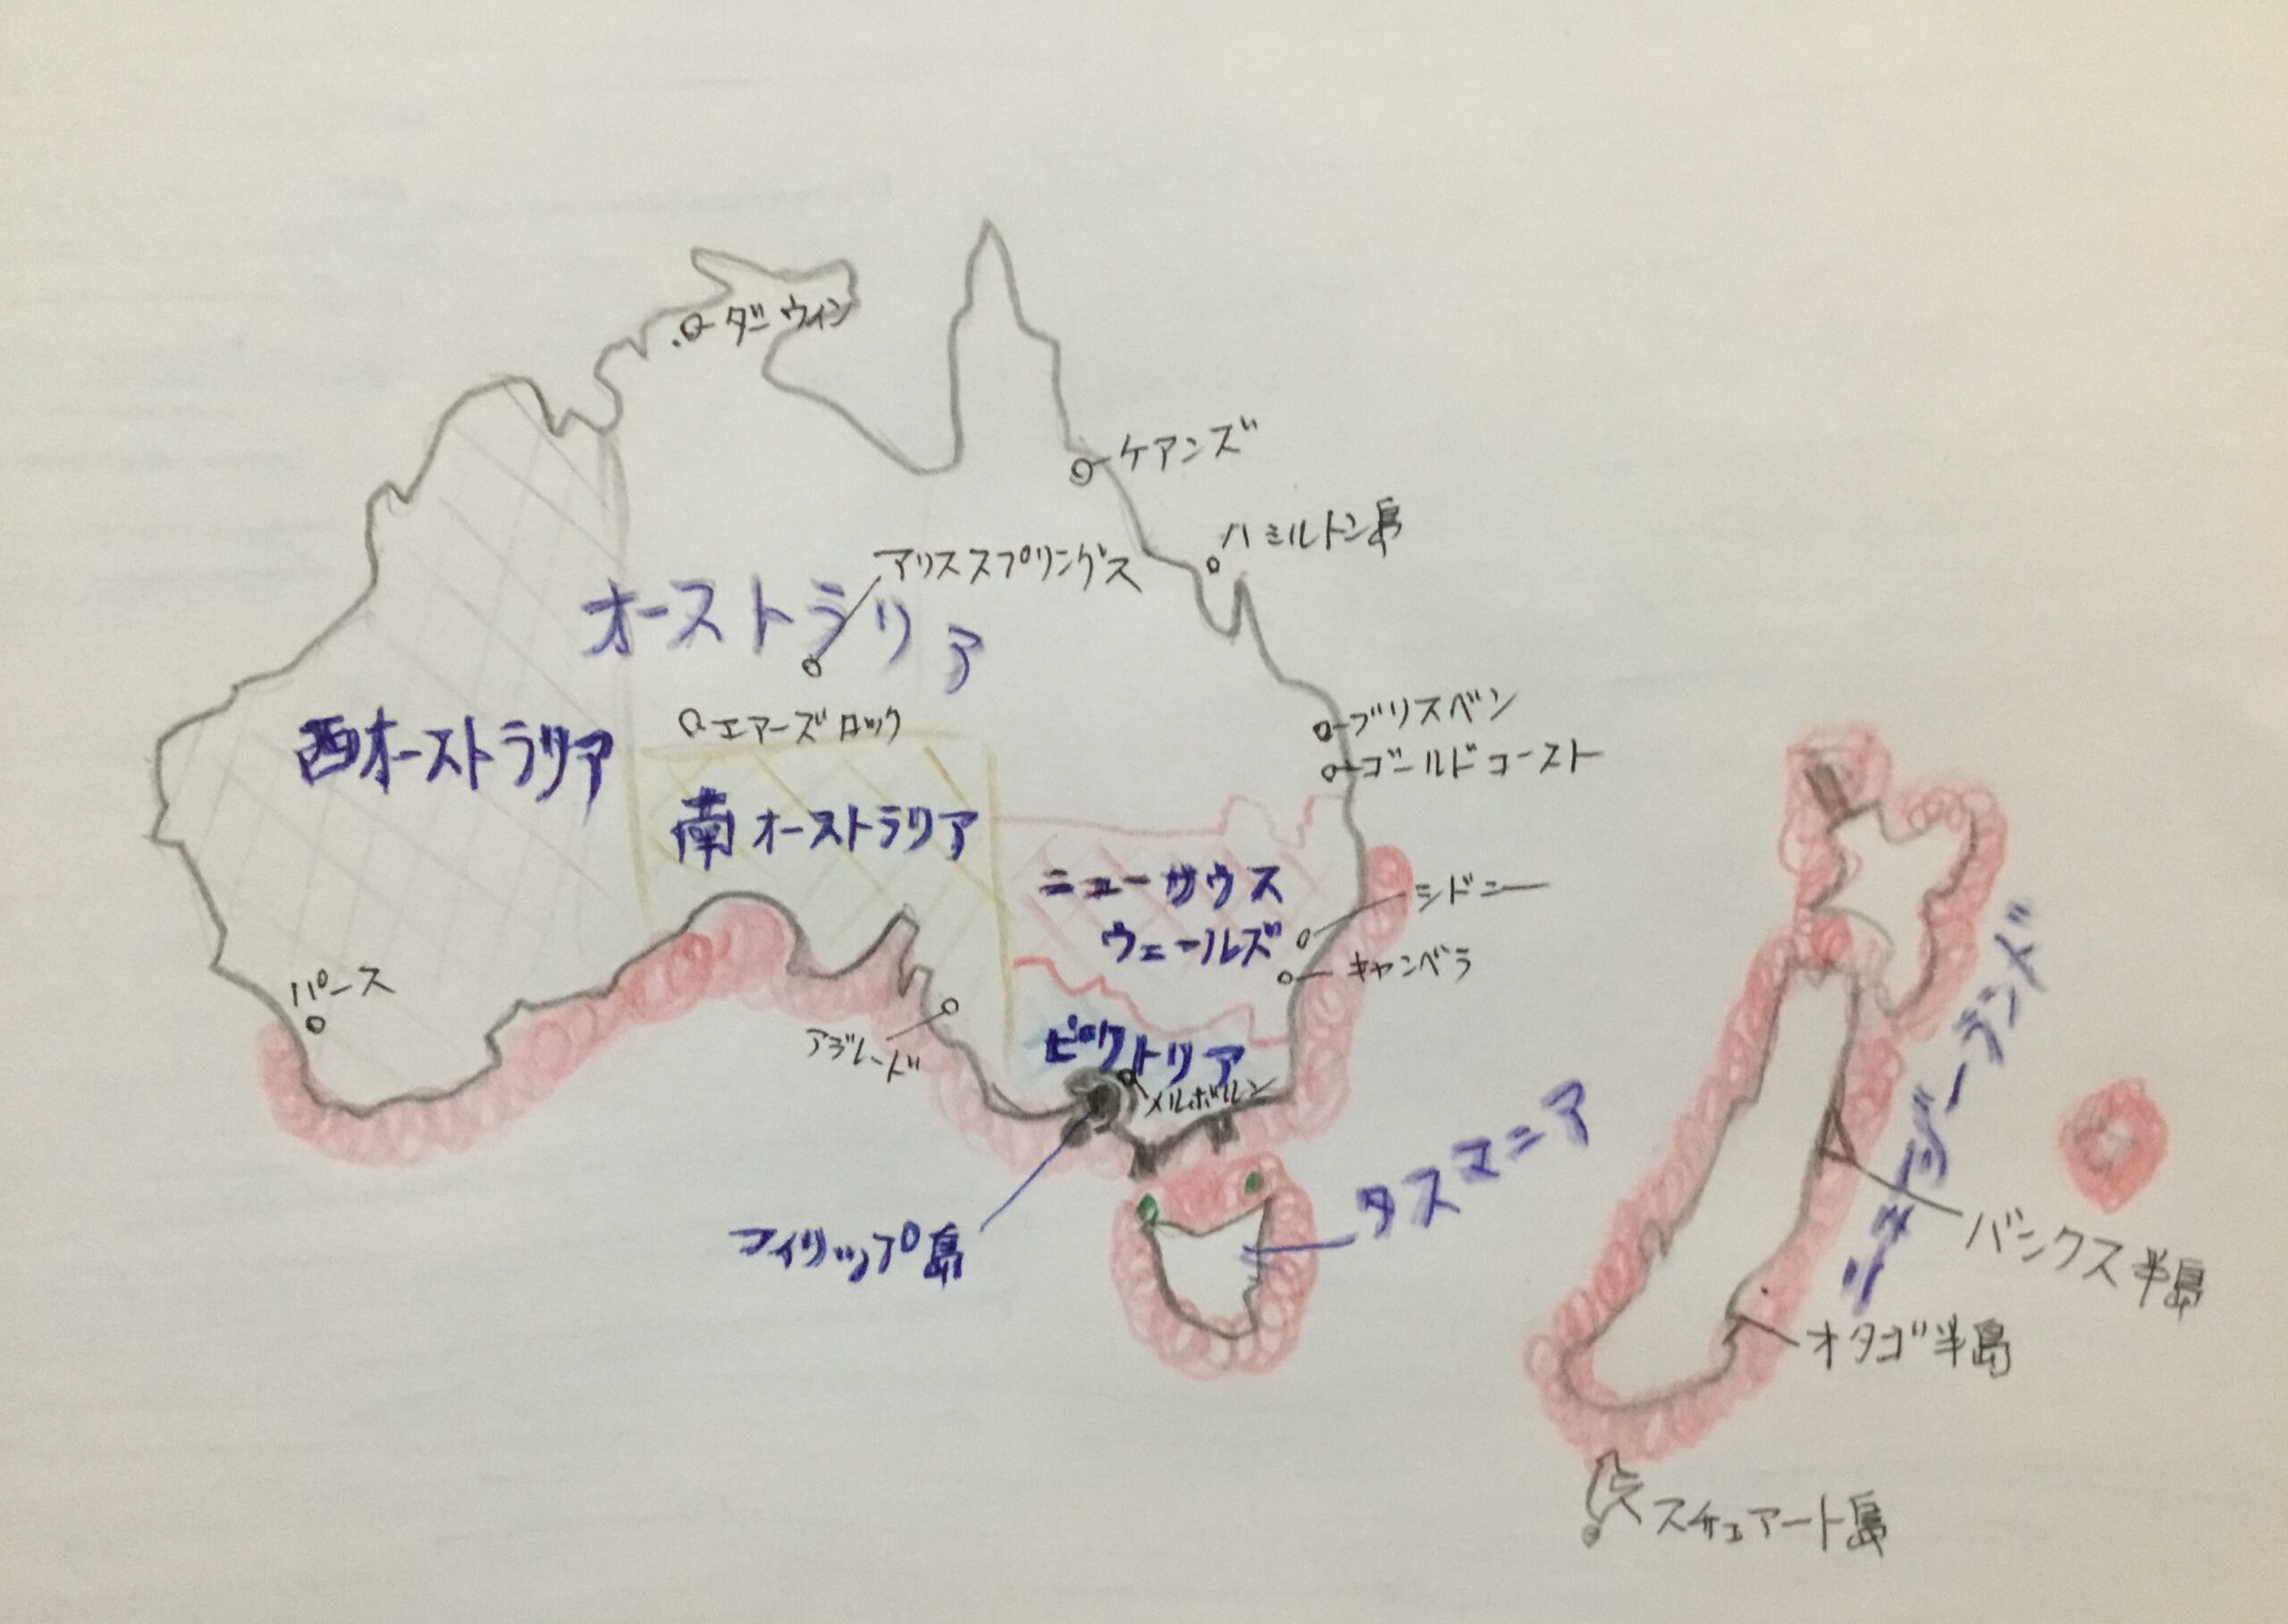 ダーウィン
ケアンズ
ハミルトン島
アリススプリングス
オーストラリア
エアーズロック
西オーストラリア
ブリスベン
ゴールドコースト
南オーストラリア
ニューサウス
ウェールズ
シドニー
キャンベラ
パース
アデレード
ビクトリア
メルボルン
フィリップ島
タスマニア
ニュージーランド
バンクス半島
オタゴ半島
スチュアート島